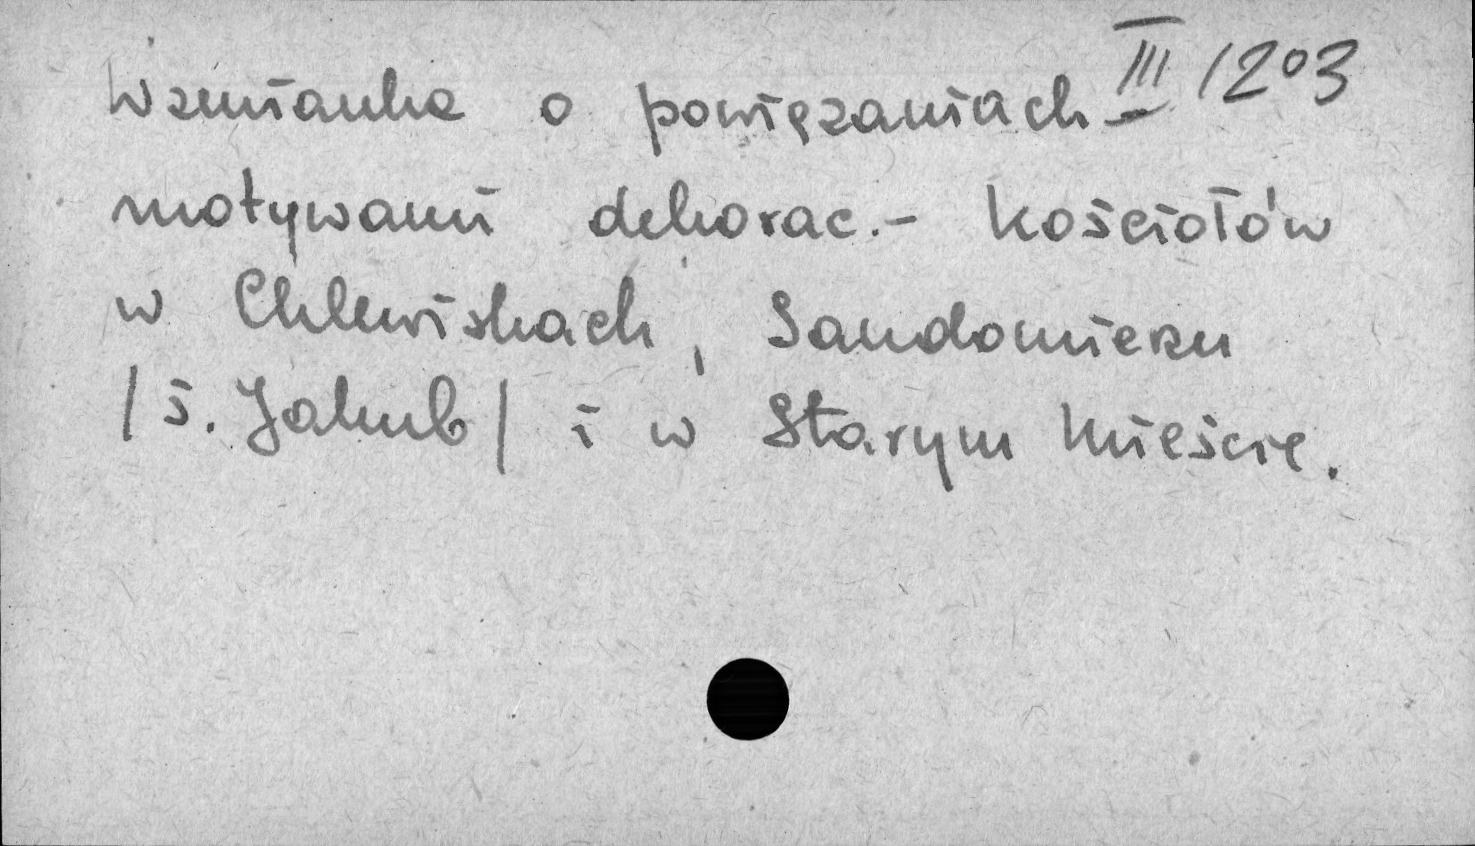 III 1203
Wzmianka o powięzaniach
motywami dekorac.- kościołów
w Chlewiskach, Sandomierzu
/ś. Jakub/ i w Starym Mieście.